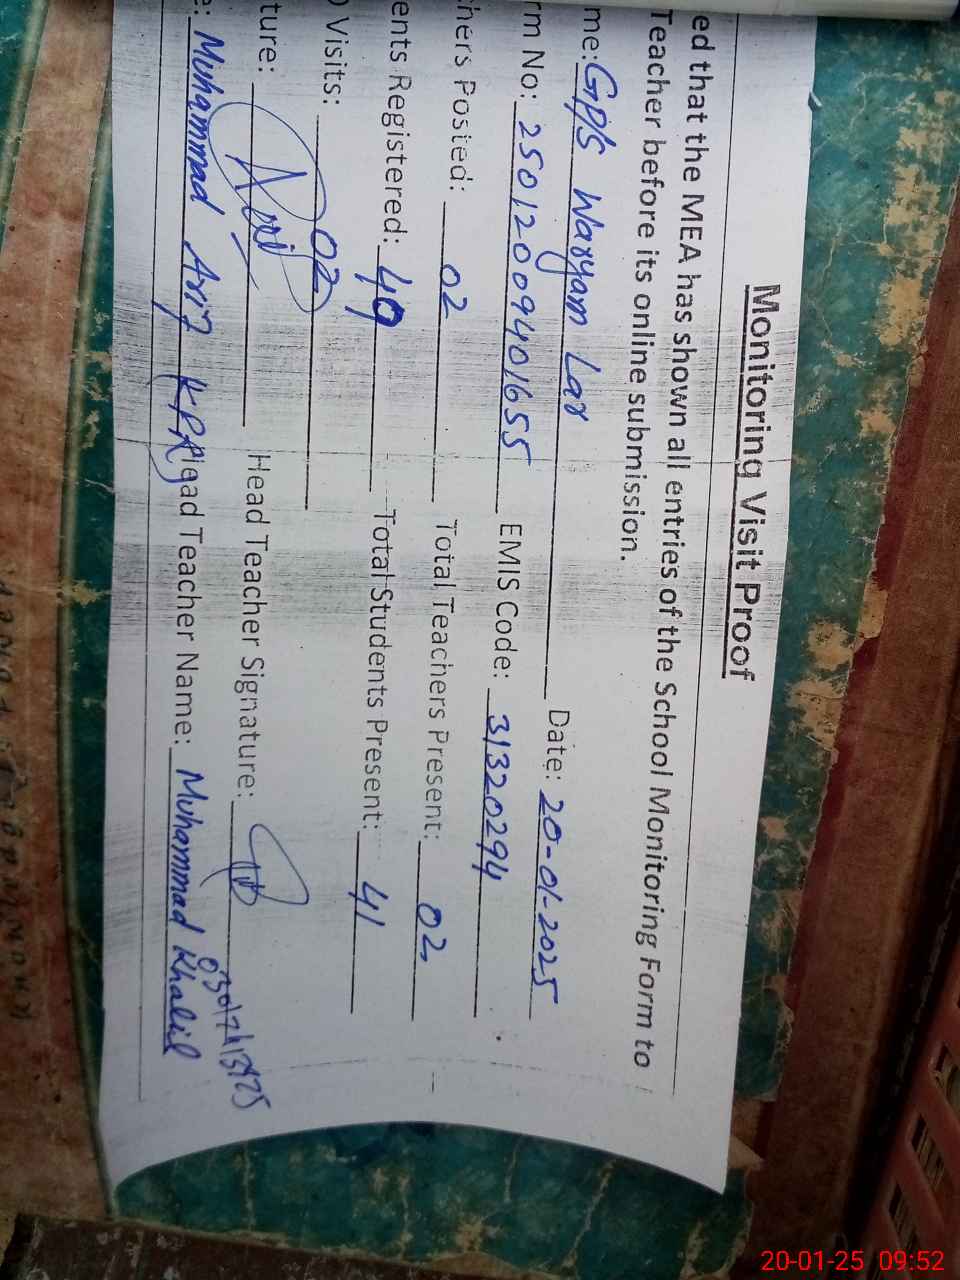 Monitoring Visit Proof
ed that the MEA has shown all entries of the School Monitoring Form to
Teacher before its online submission.
me: GPS Waryam Lar Date: 20-01-2025
rm No: 25012009401655 EMIS Code: 31320294
hers Posted: 02 Total Teachers Present: 02
ents Registered: 49 Total Students Present: 41
Visits: 02
ture: Head Teacher Signature:
e: Muhammad Arif Head Teacher Name: Muhammad Khalil
20-01-25 09:52